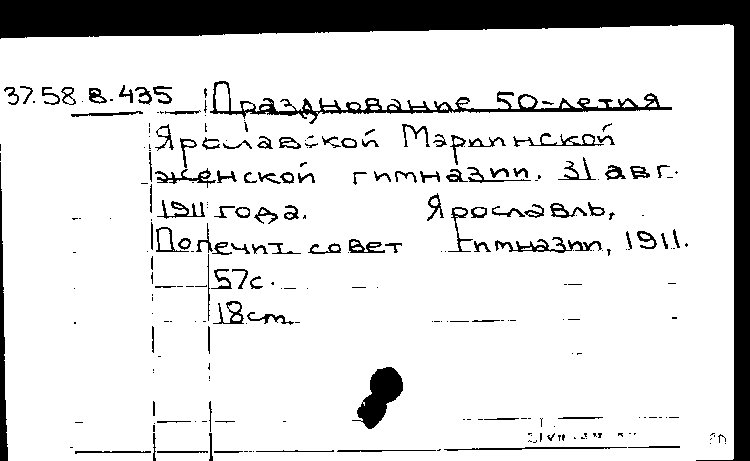 37.58.8.435 Празднование 50-летия
Ярославской Мариинской
женской гимназии. 31 авг.
1911 года. Ярославль,
Попечит. совет гимназии, 1911.
57с.
18cm.